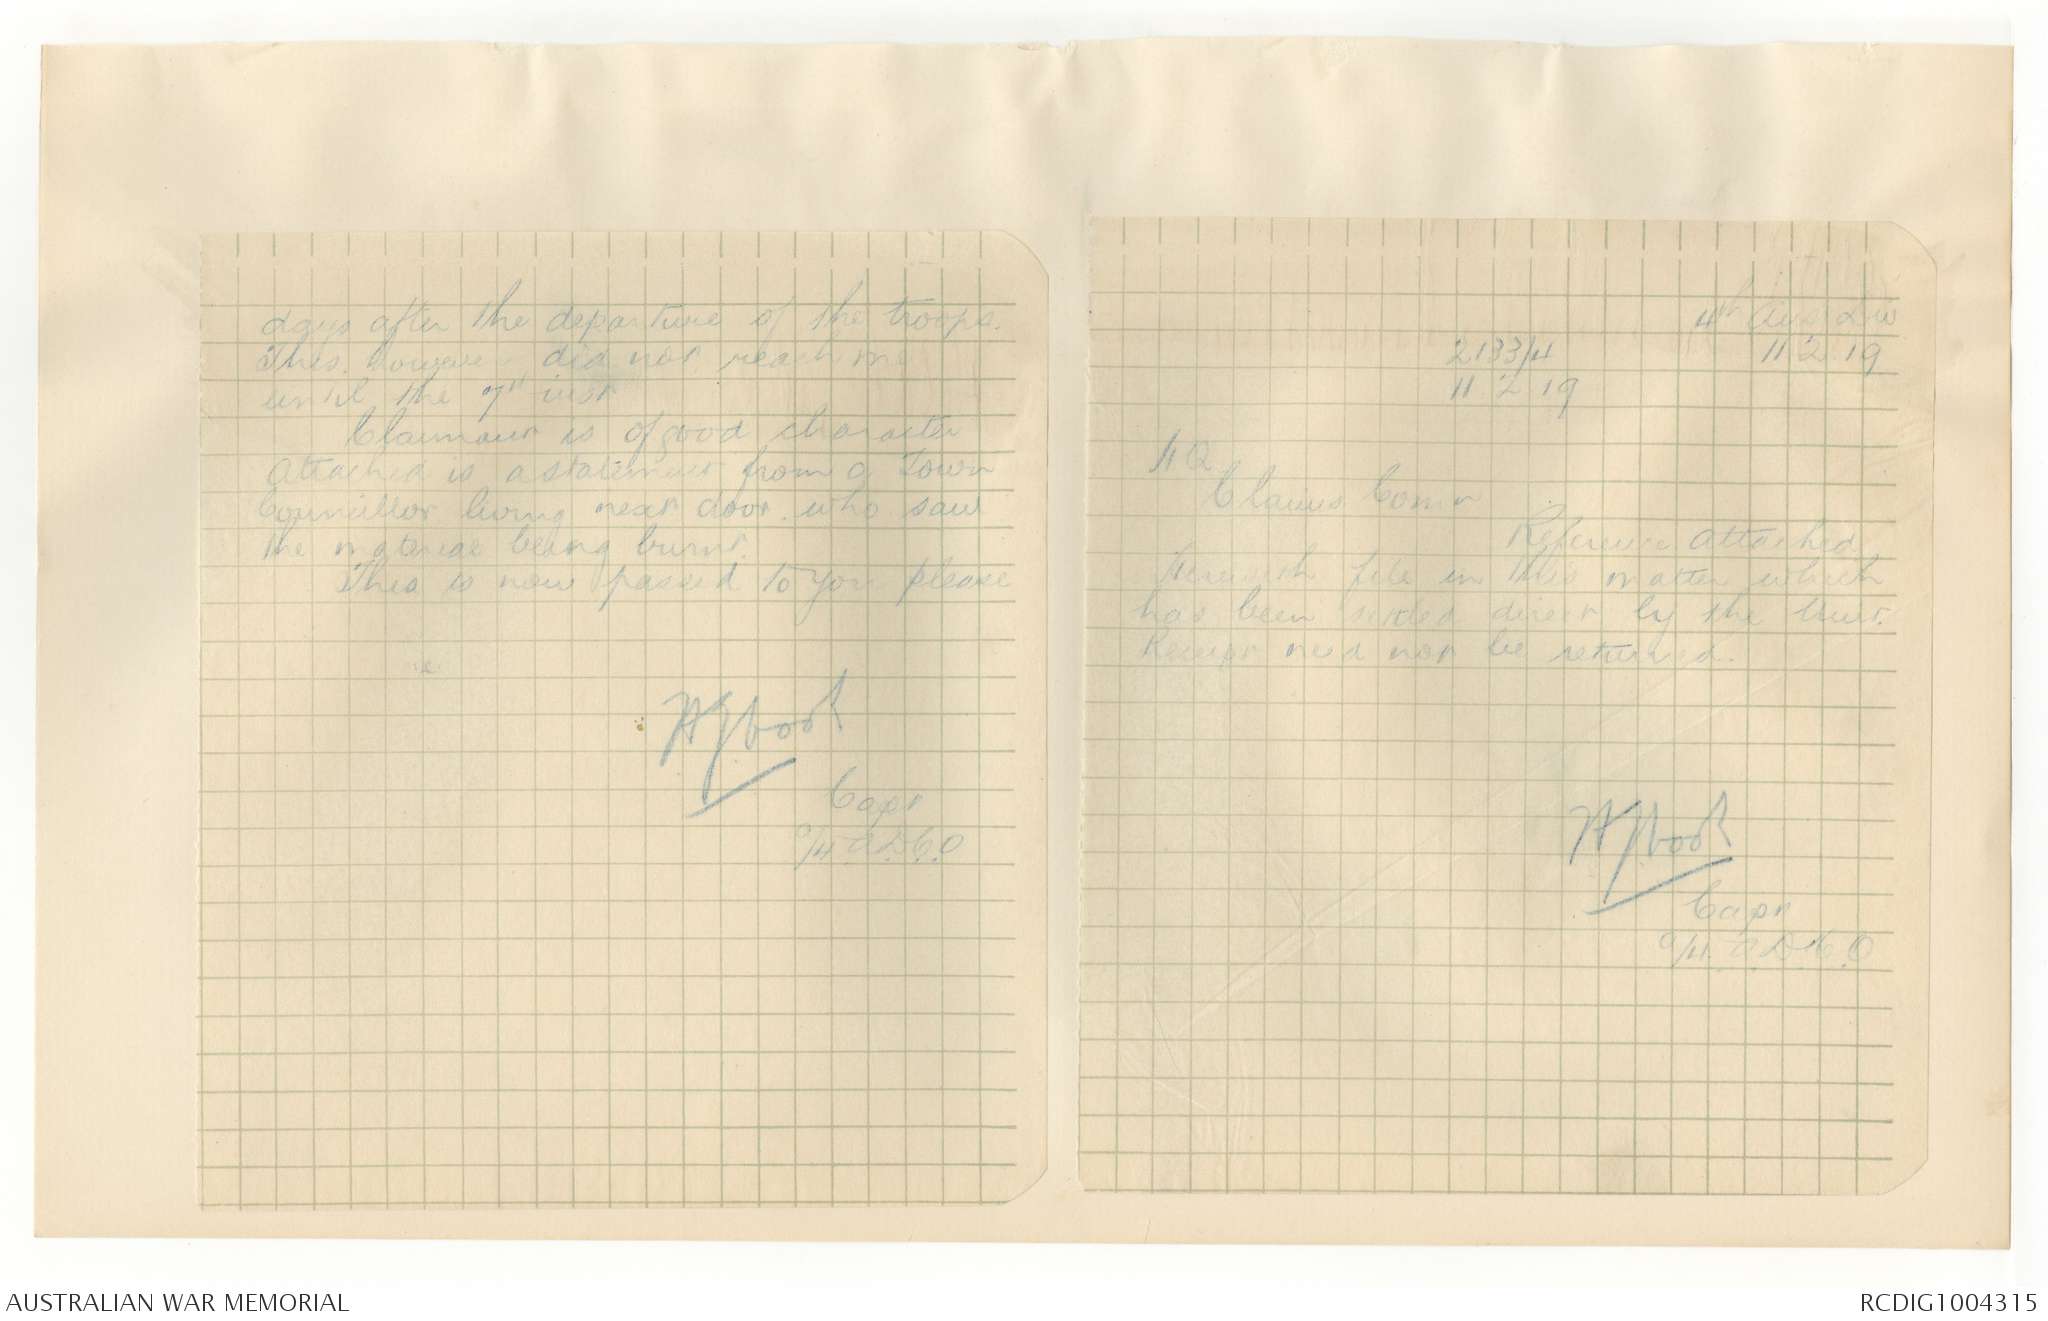 days after the departure of the troops.
This however did not reach me
until the 7th inst
Claimant is of good character
Attached is a statement from a Town
Councillor living next door who saw
the material being burnt.
This is now passed to you please
Capt
O/4 A.D.C.O
4th Aus Div
2133/4 11.2.19
11.2.19
HQ
Claims Comn
Reference attached
Herewith file in this matter which
has been settled direct by the Unit.
Receipt need not be returned.
Capt
O/4 A.D.C.O
AUSTRALIAN WAR MEMORIAL
RCDIG1004315